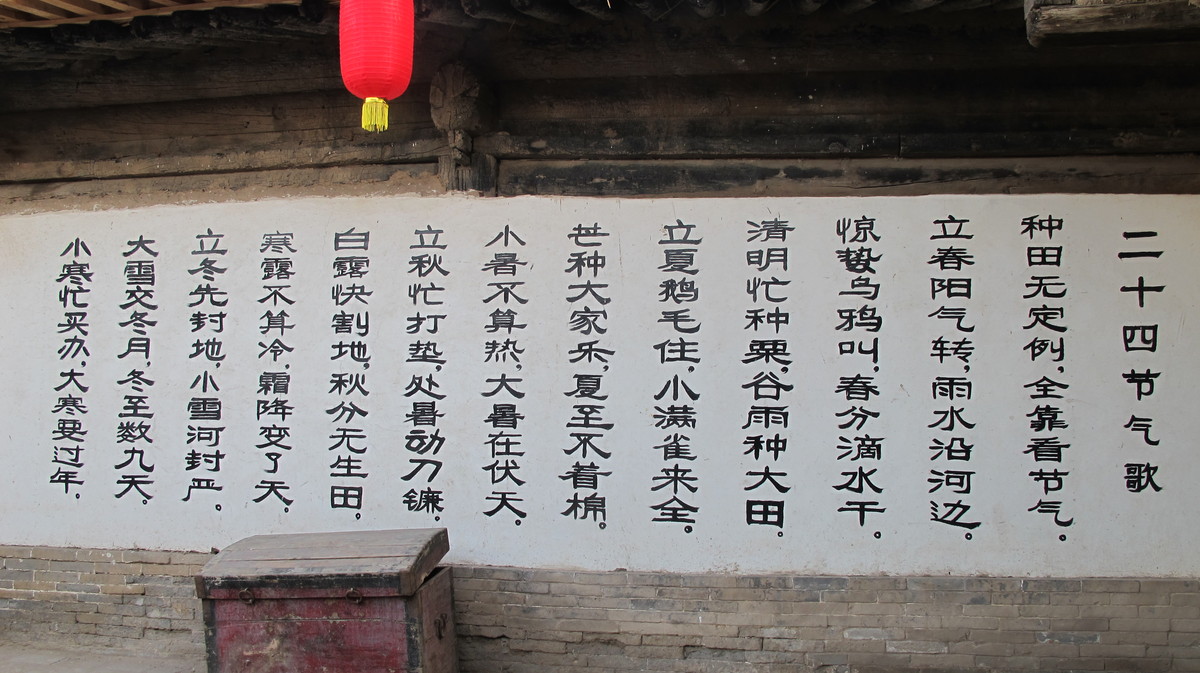 二十四节气歌
种田无定例,全靠看节气。
立春阳气转,雨水沿河边。
惊蛰乌鸦叫,春分滴水干。
清明忙种粟,谷雨种大田。
立夏鹅毛住,小满雀来全。
芒种大家乐,夏至不着棉。
小暑不算热,大暑在伏天。
立秋忙打垫,处暑动刀镰。
白露快割地,秋分无生田。
寒露不算冷,霜降变了天。
立冬先封地,小雪河封严。
大雪交冬月,冬至数九天。
小寒忙买办,大寒要过年。